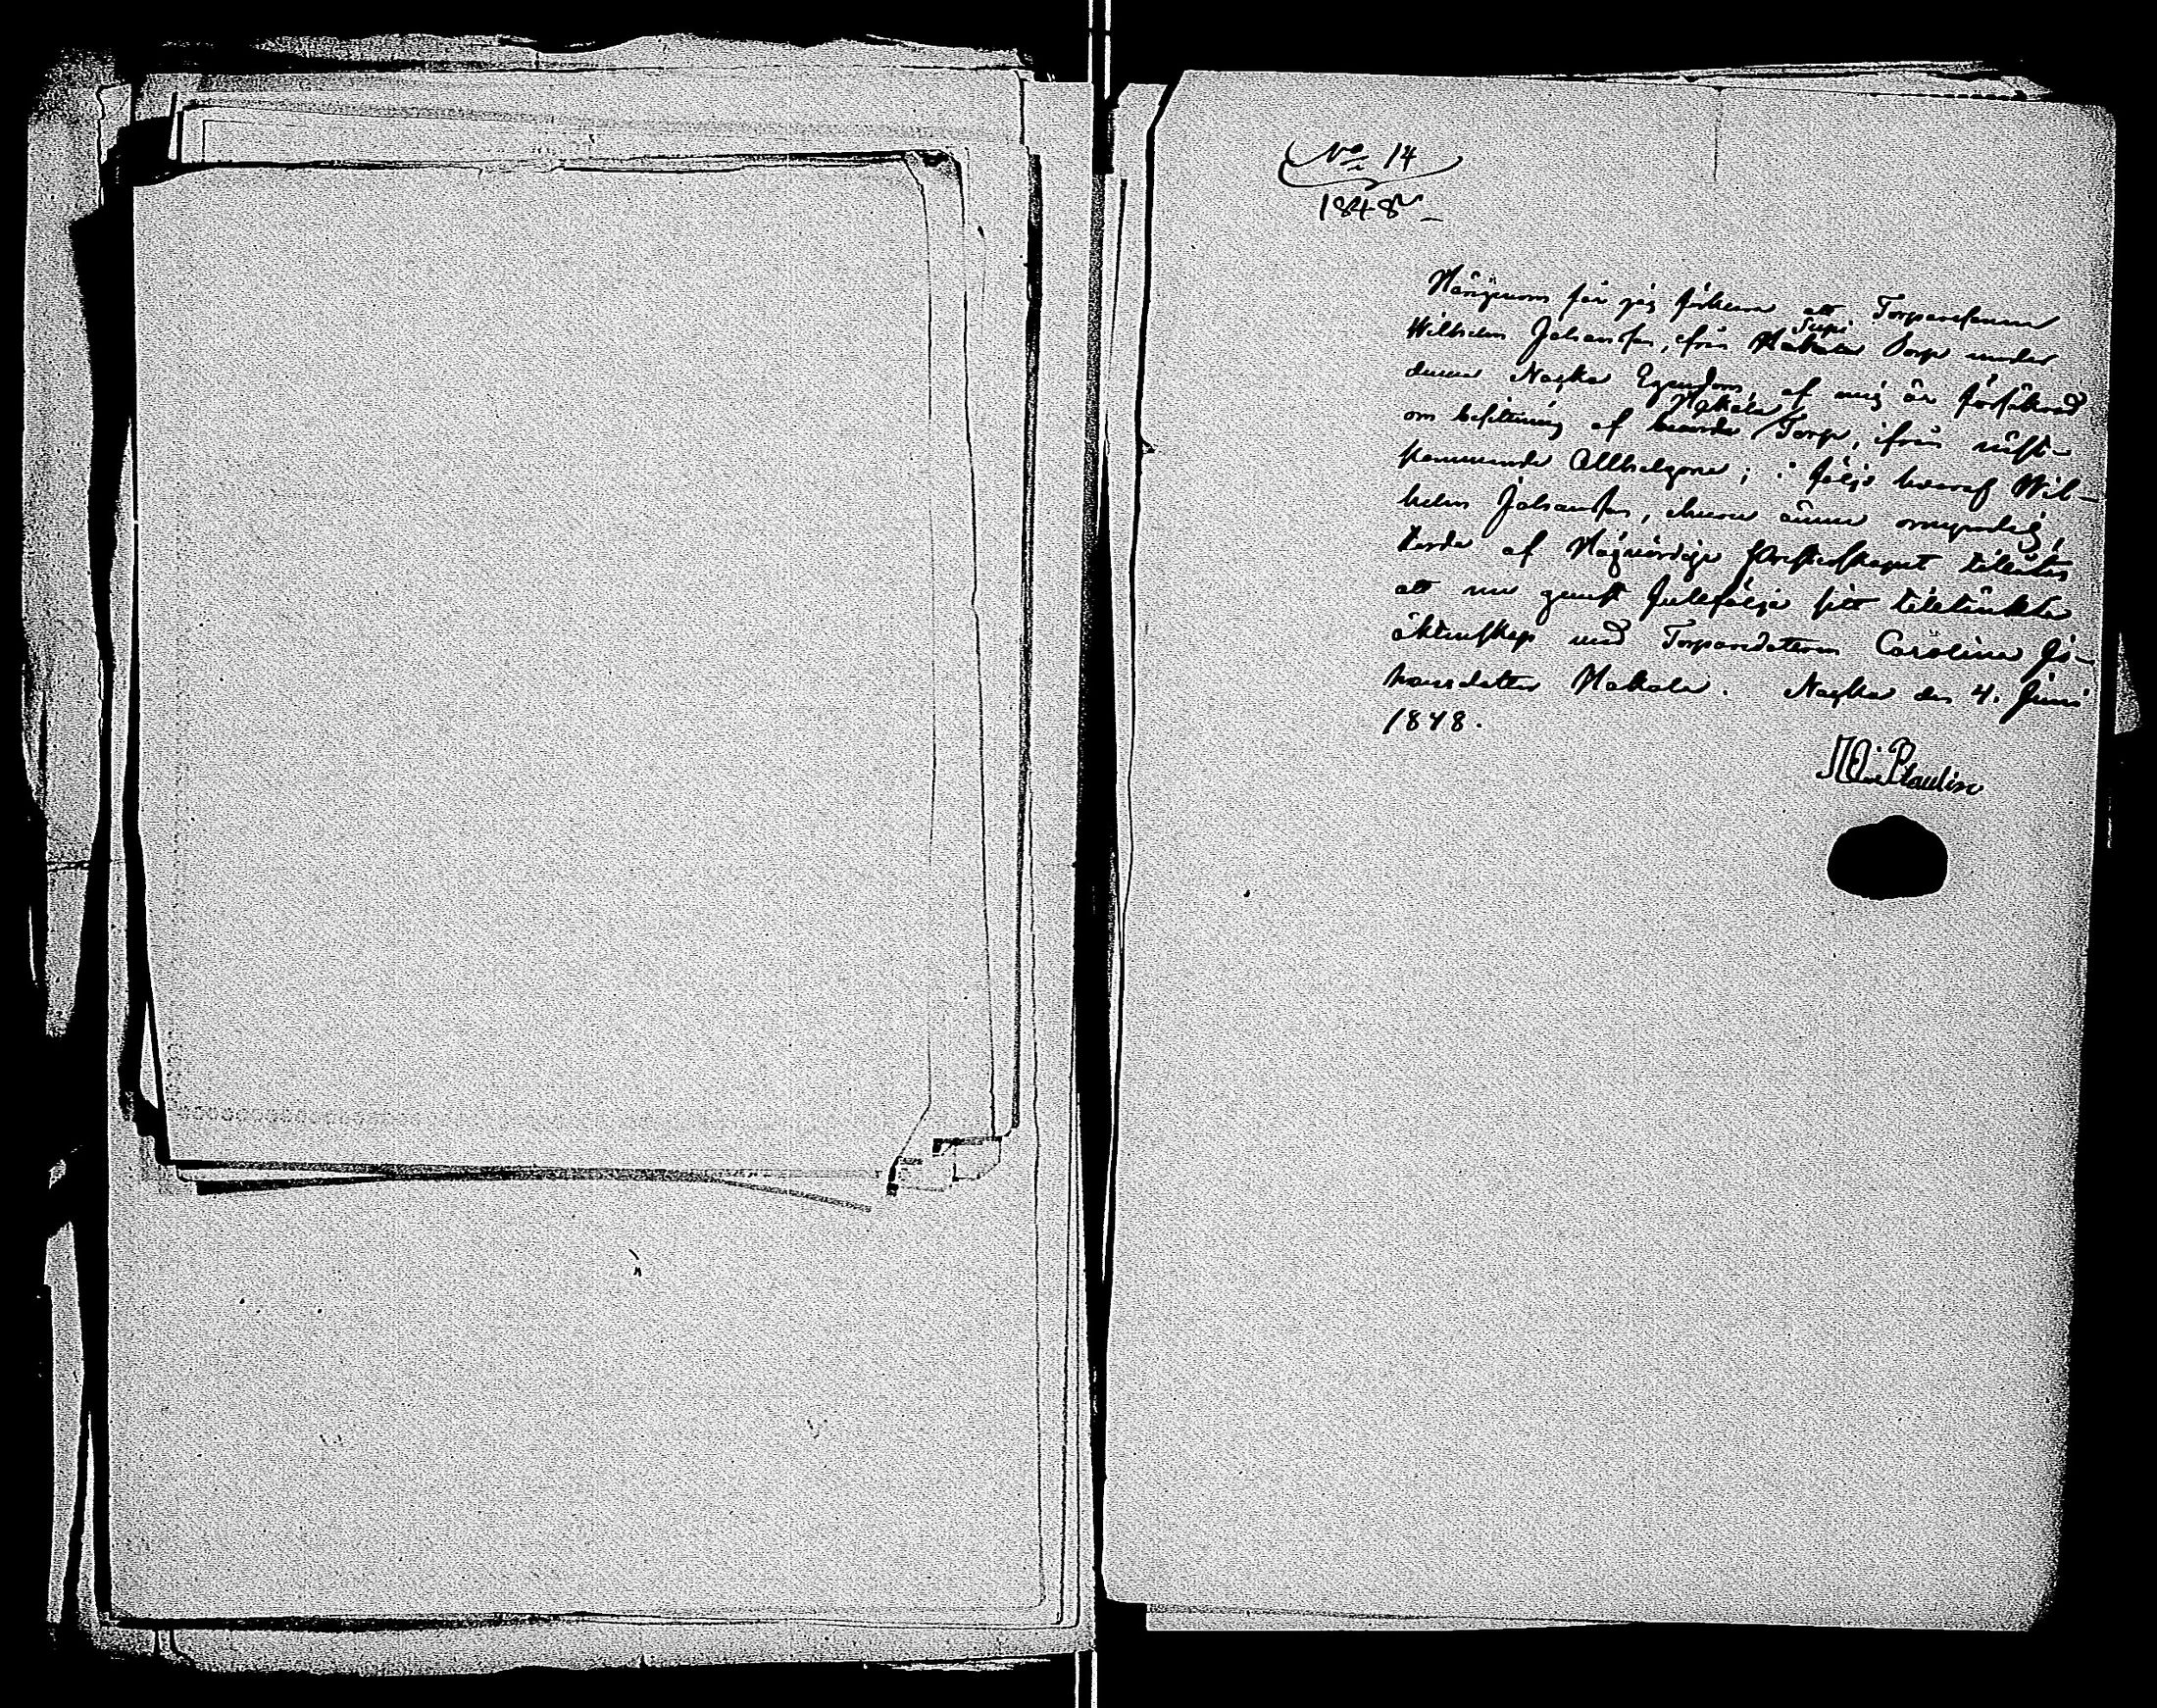 No 14
1848
Härigenom får jag förklara att Torparesonen
Wilhelm Johansson, från Supi Torp under
denna Nagka Egendom, af mig är försäkrad
om besittning af Hakala Torp, ifrån näst-
kommande Allhelgona; i följe hvaraf Wil-
helm Johansson, ehuru ännu omyndig,
torde af Högvördige Presterskapet tillåtas
att nu genast fullfölja sitt tilltänkta
äktenskap med Torparedottern Carolina Jo-
hansdotter Hakala. Nagka den 4. Juni
1848.